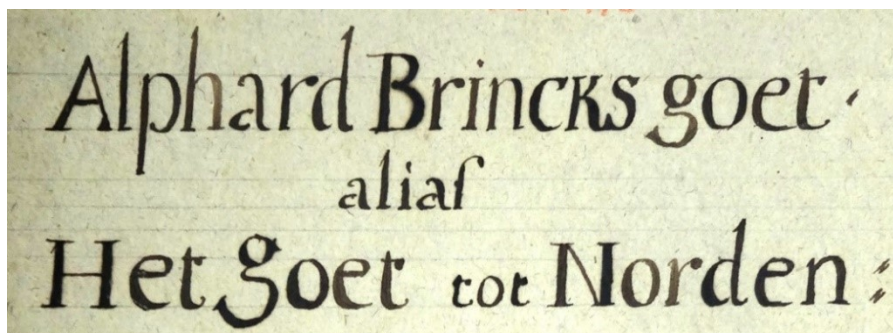 Alphard Brincks goet.
aliaſ
Het goet tot Norden: